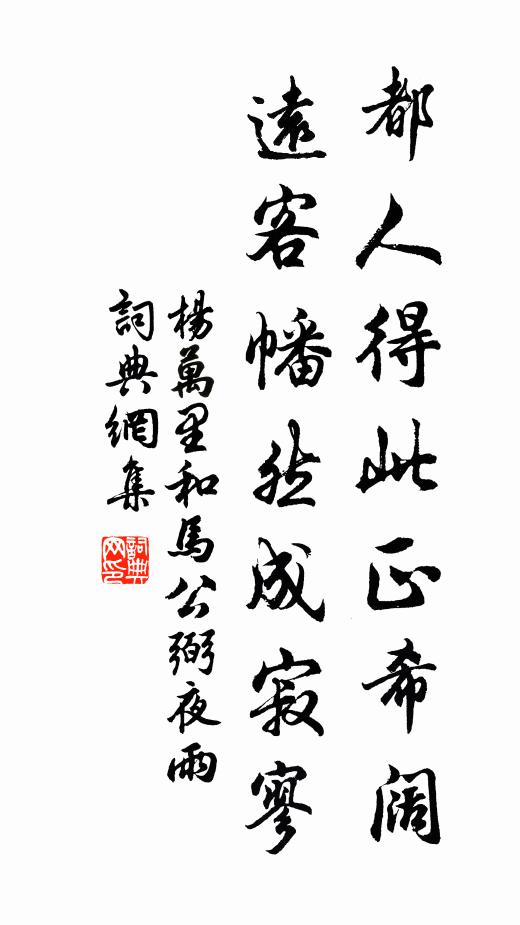 都人得此正希阔
遠客幡然成寂寥
楊萬里和馬公弼夜雨
詞典網集
詞典网印